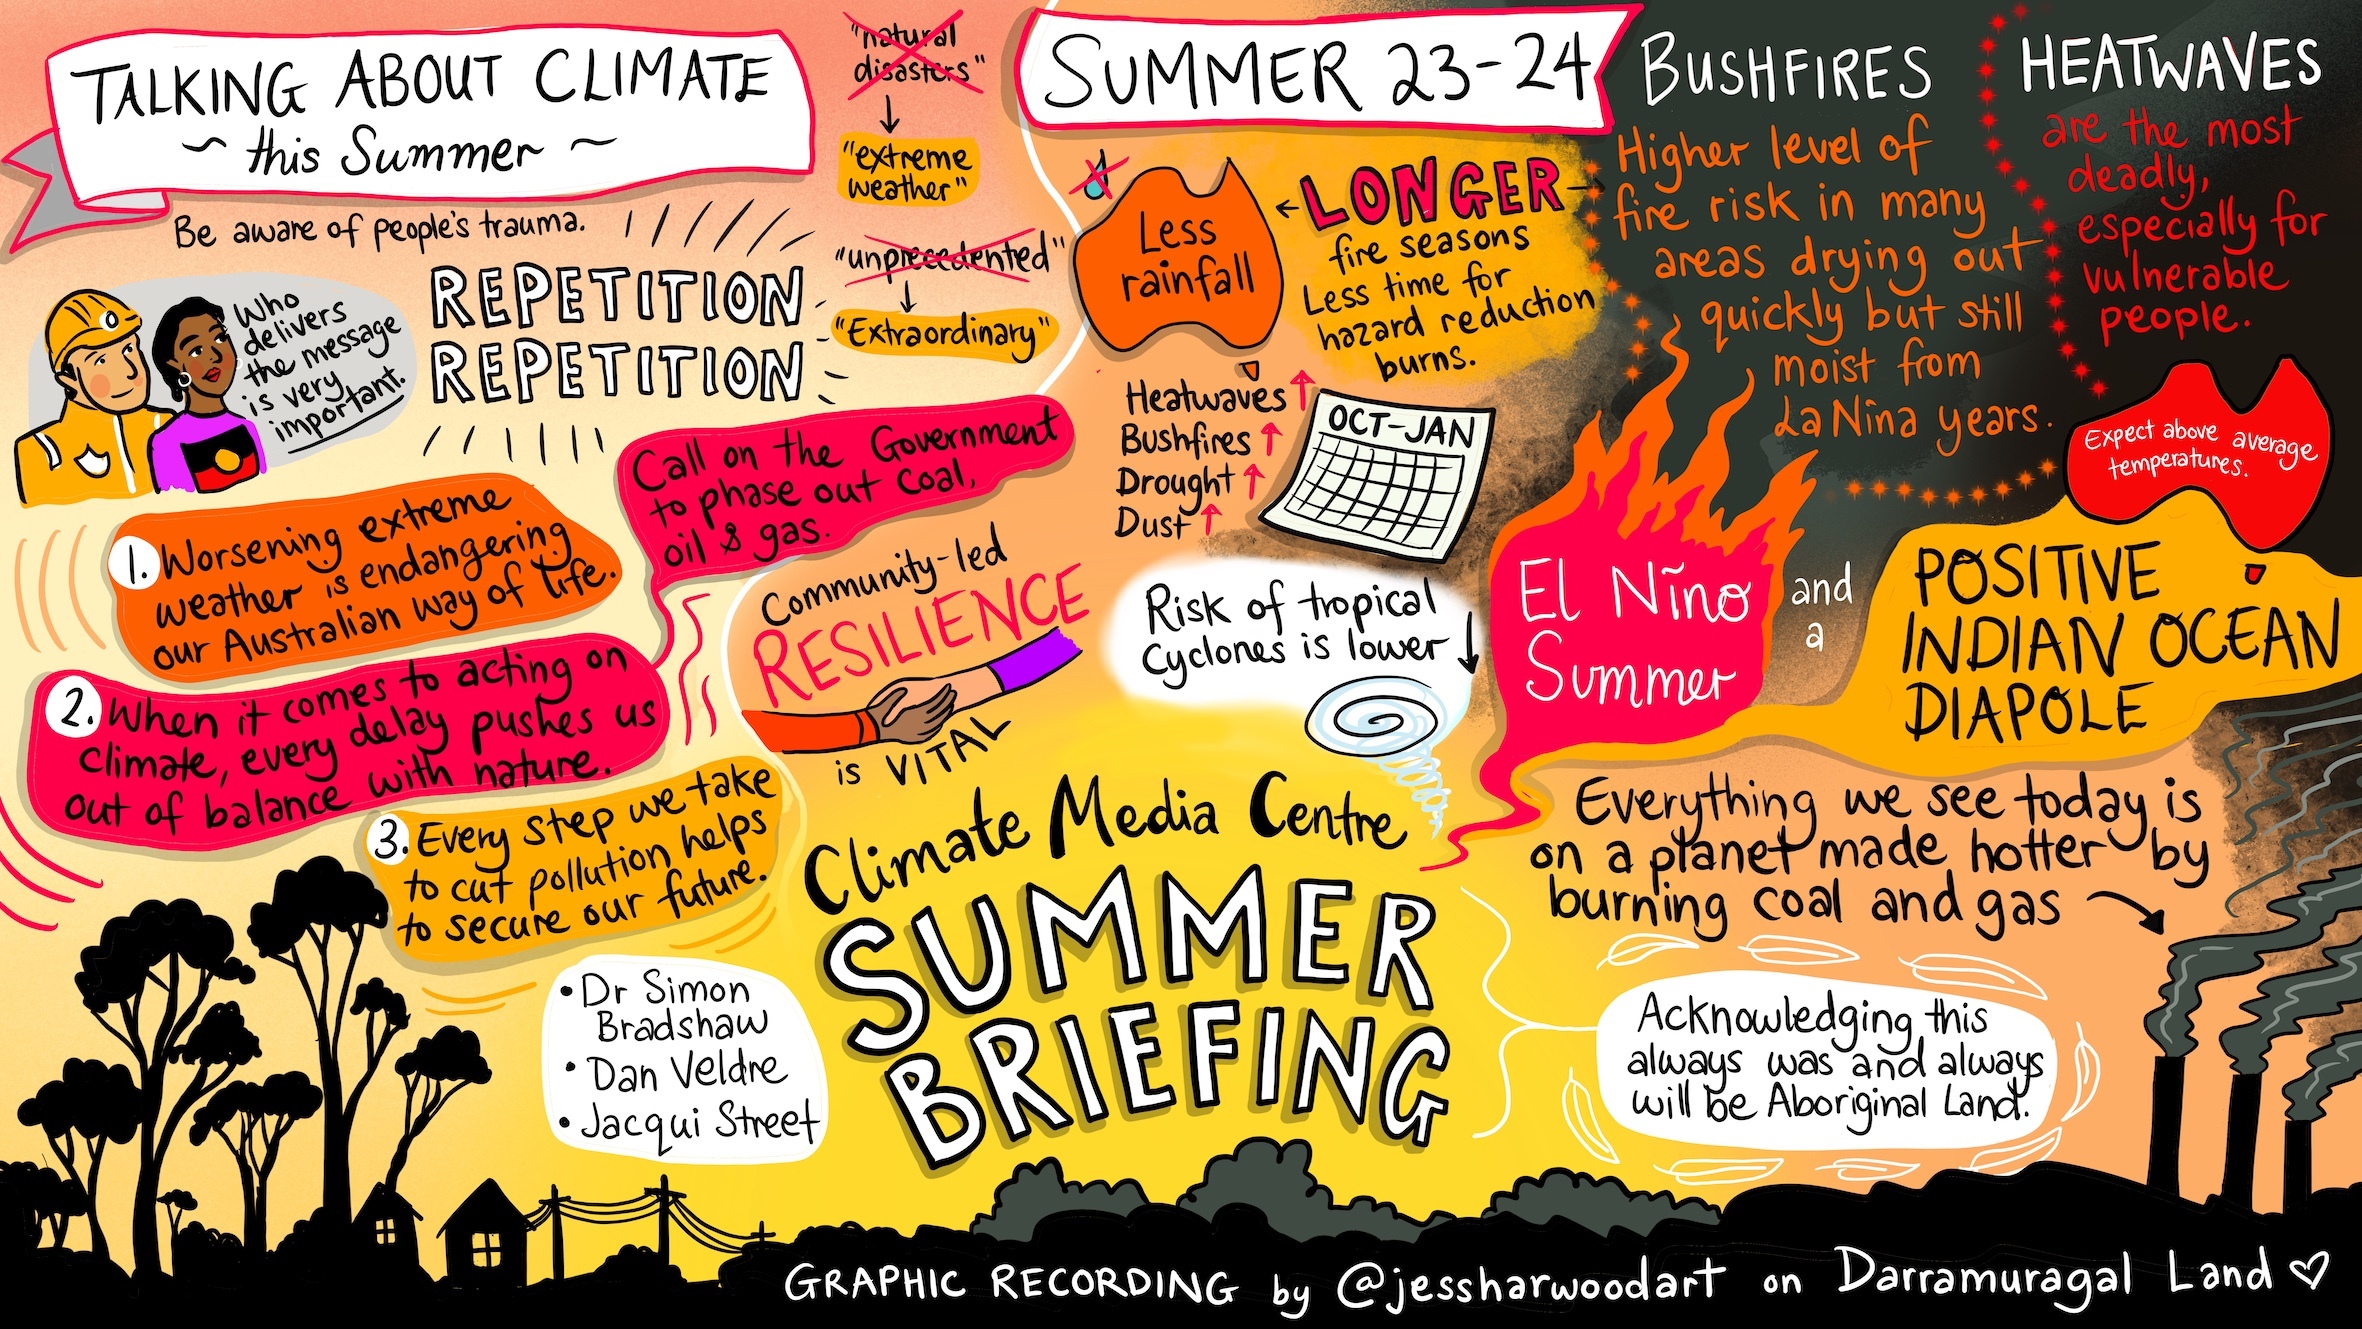 TALKING ABOUT CLIMATE
~ this Summer ~
Be aware of people's trauma.
Who
delivers
the message
is very
important.
REPETITION
REPETITION
"natural
disasters"
"extreme
weather"
"unprecedented"
"Extraordinary"
1. Worsening extreme
weather is endangering
our Australian way of life.
Call on the Government
to phase out coal,
oil & gas.
2. When it comes to acting on
climate, every delay pushes us
out of balance with nature.
3. Every step we take
to cut pollution helps
to secure our future.
Community-led
RESILIENCE
is VITAL
• Dr Simon
Bradshaw
• Dan Veldre
• Jacqui Street
SUMMER 23-24
Less
rainfall
LONGER
fire seasons
Less time for
hazard reduction
burns.
Heatwaves
Bushfires
Drought
Dust
OCT-JAN
Risk of tropical
Cyclones is lower
BUSHFIRES
Higher level of
fire risk in many
areas drying out
quickly but still
moist from
La Nina years.
HEATWAVES
are the most
deadly,
especially for
vulnerable
people.
Expect above average
temperatures.
El Nĩno
Summer
and
a
POSITIVE
INDIAN OCEAN
DIAPOLE
Everything we see today is
on a planet made hotter by
burning coal and gas
Climate Media Centre
SUMMER
BRIEFING
Acknowledging this
always was and always
will be Aboriginal Land.
GRAPHIC RECORDING by @jessharwoodart on Darramuragal Land